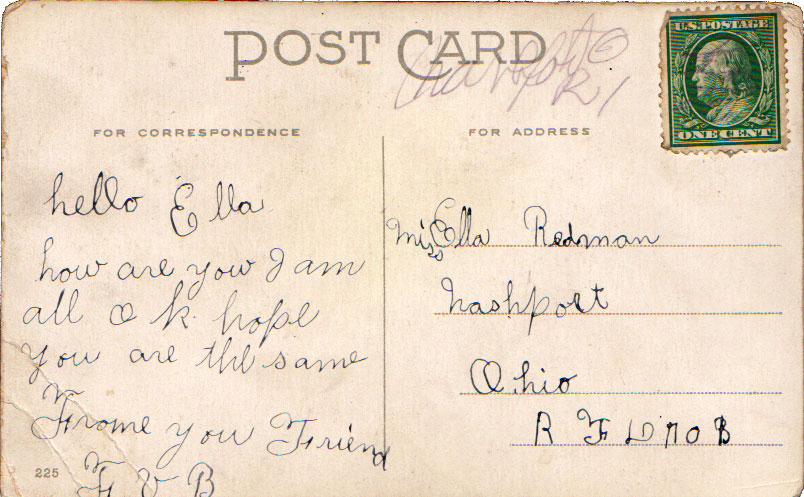 POST CARD
R 1
U.S. POSTAGE
ONE CENT
FOR CORRESPONDENCE
FOR ADDRESS
hello Ella
how are you I am
all O k. hope
you are the same
Frome you Friend
F V B
225
Miss Ella Redman
nashport
Ohio
R F D no B